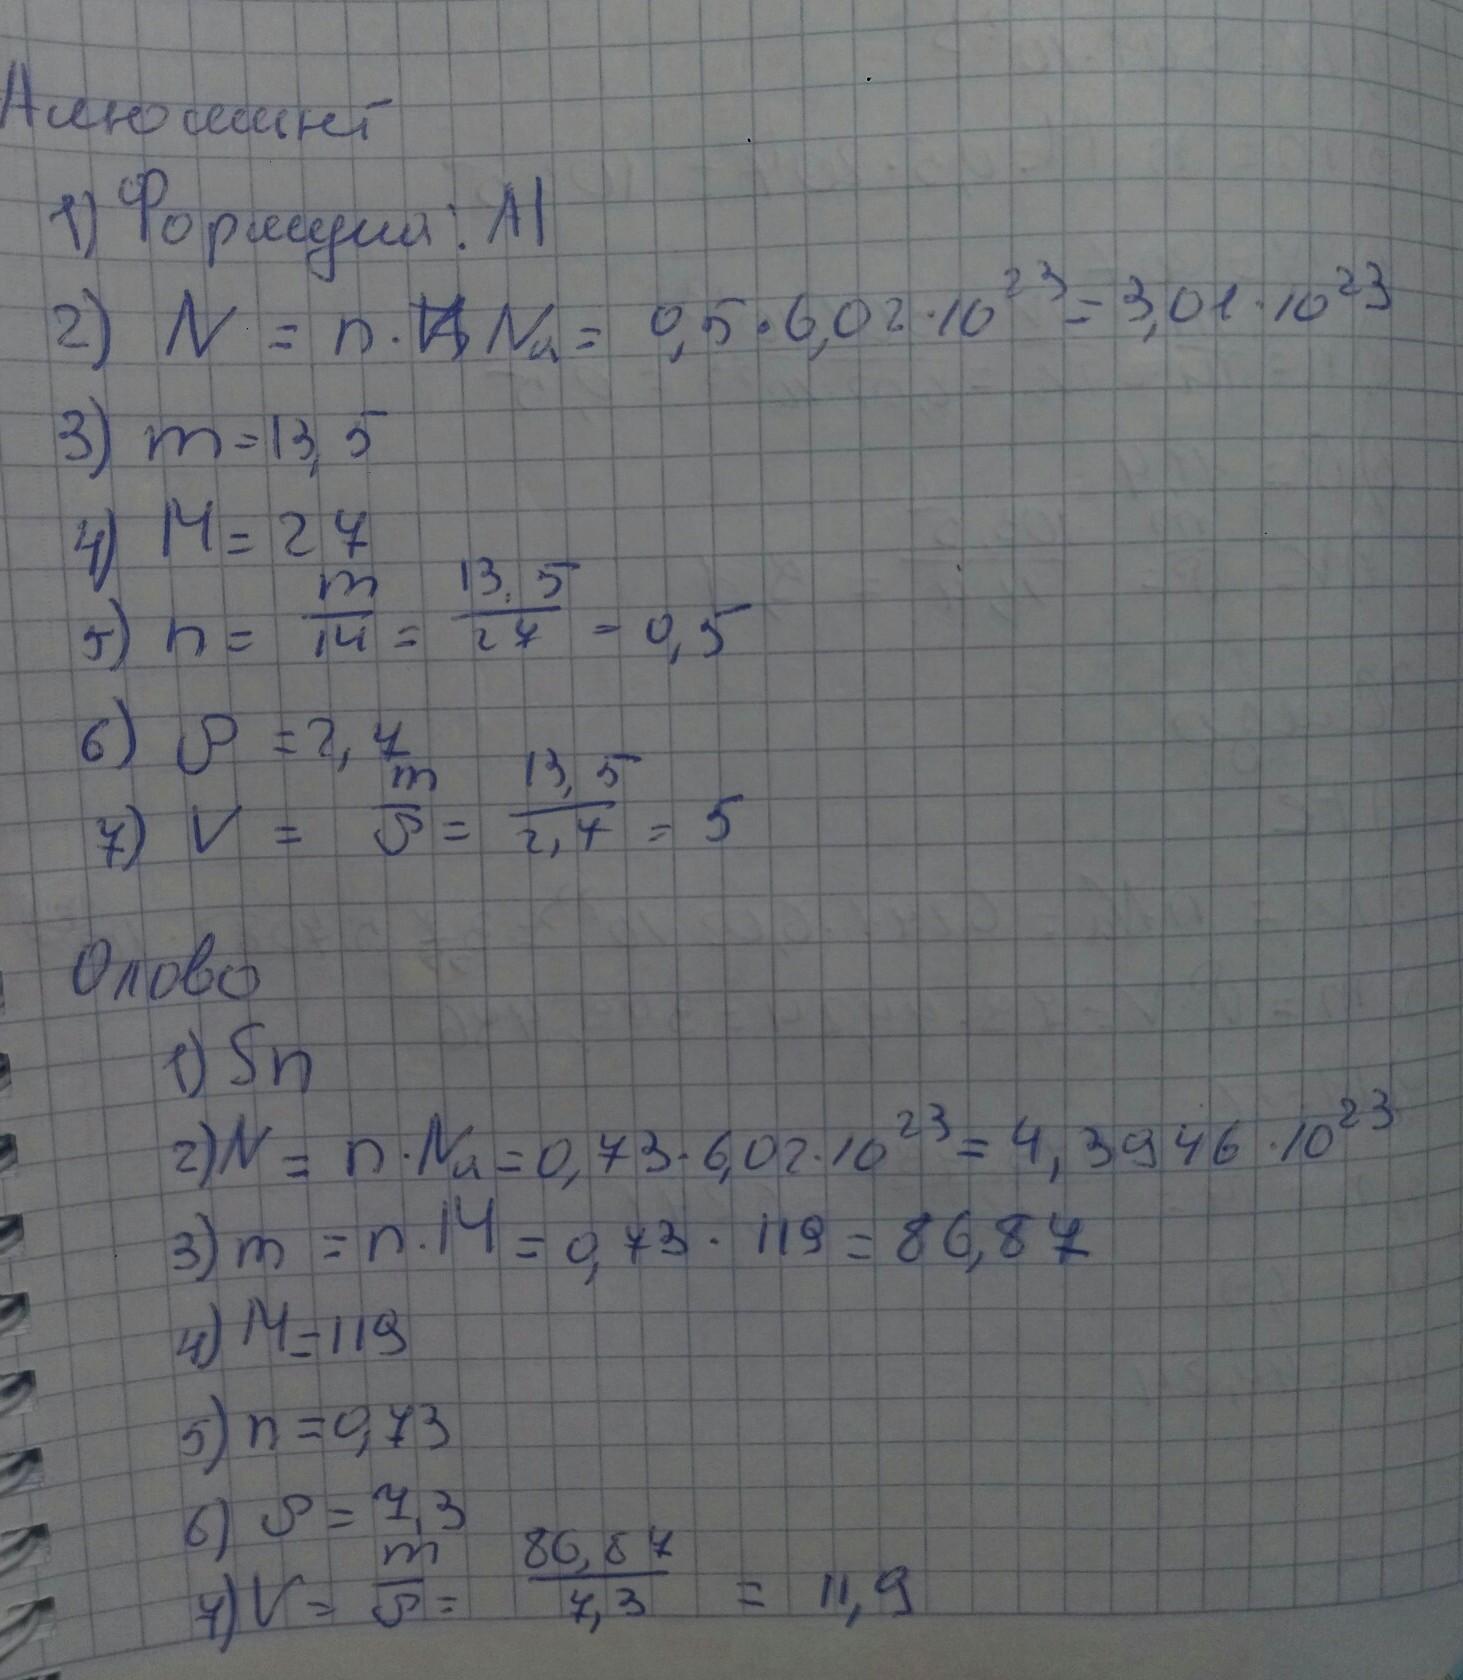 Алюминй
1) Формула: Al
2) N = n · Na = 0,5 · 6,02 · 10²³ = 3,01 · 10²³
3) m = 13,5
4) M = 27
5) n = m/M = 13,5/27 = 0,5
6) ρ = 2,7
7) V = m/ρ = 13,5/2,7 = 5
Олово
1) Sn
2) N = n · Na = 0,73 · 6,02 · 10²³ = 4,3946 · 10²³
3) m = n · M = 0,73 · 119 = 86,87
4) M = 119
5) n = 0,73
6) ρ = 7,3
7) V = m/ρ = 86,87/7,3 = 11,9